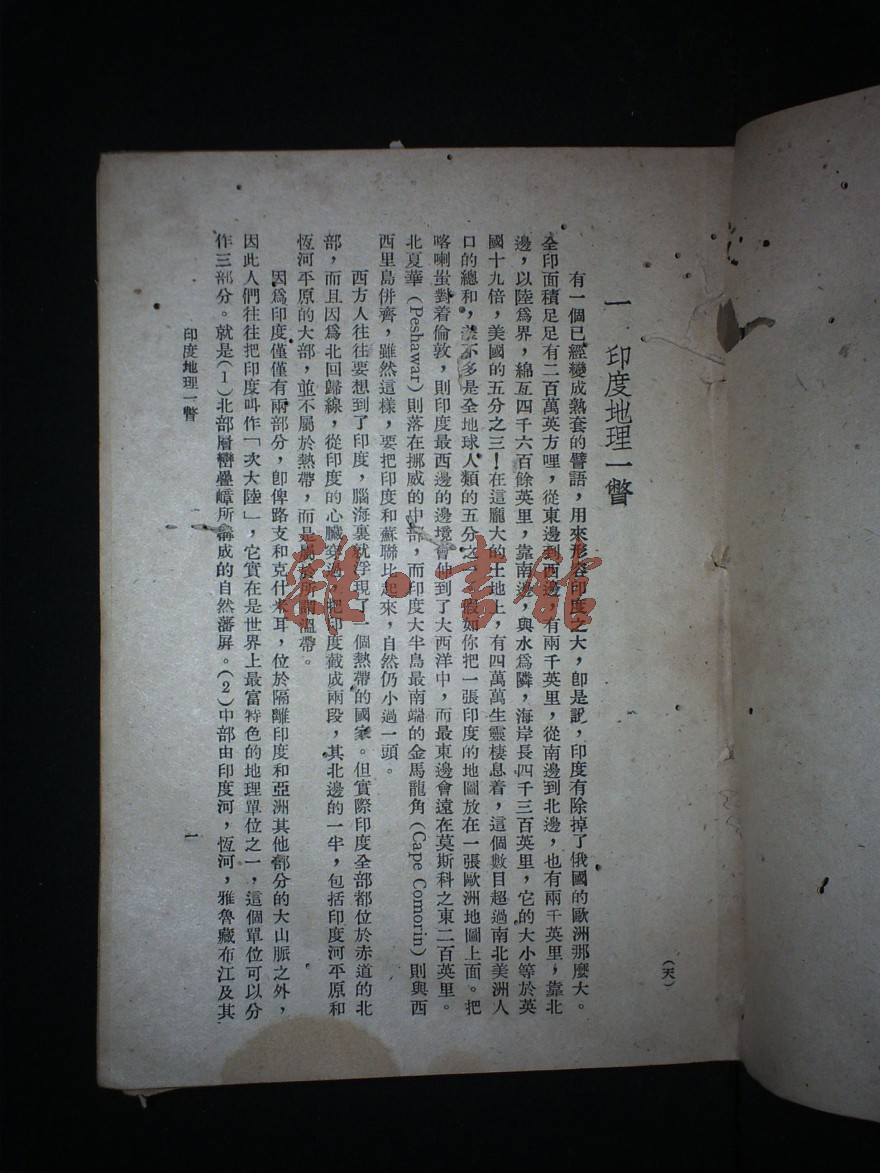 一 印度地理一瞥
有一個已經變成熟套的譬語，用來形容印度之大，卽是說，印度有除掉了俄國的歐洲那麼大。
全印面積足足有二百萬英方哩，從東邊到西邊，有兩千英里，從南邊到北邊，也有兩千英里，靠北
邊，以陸爲界，綿亙四千六百餘英里，靠南邊，與水爲隣，海岸長四千三百英里，它的大小等於英
國十九倍，美國的五分之三！在這龐大的土地上，有四萬萬生靈棲息着，這個數目超過南北美洲人
口的總和，差不多是全地球人類的五分之一。假如你把一張印度的地圖放在一張歐洲地圖上面。把
喀喇蚩對着倫敦，則印度最西邊的邊境會伸到了大西洋中，而最東邊會遠在莫斯科之東二百英里。
北夏華（Peshawar）則落在挪威的中部，而印度大半島最南端的金馬龍角（Cape Comorin）則與西
西里島併齊，雖然這樣，要把印度和蘇聯比起來，自然仍小過一頭。
西方人往往要想到了印度，腦海裏就浮現了一個熱帶的國家。但實際印度全部都位於赤道的北
部，而且因爲北回歸線，從印度的心臟穿過，把印度截成兩段，其北邊的一半，包括印度河平原和
恆河平原的大部，並不屬於熱帶，而是屬於所謂溫帶。
因爲印度僅僅有兩部分，卽俾路支和克什米耳，位於隔離印度和亞洲其他部分的大山脈之外，
因此人們往往把印度叫作「次大陸」，它實在是世界上最富特色的地理單位之一，這個單位可以分
作三部分。就是（1）北部層巒疊嶂所構成的自然藩屏。（2）中部由印度河，恆河，雅魯藏布江及其
印度地理一瞥
一
（天）
雜·書館